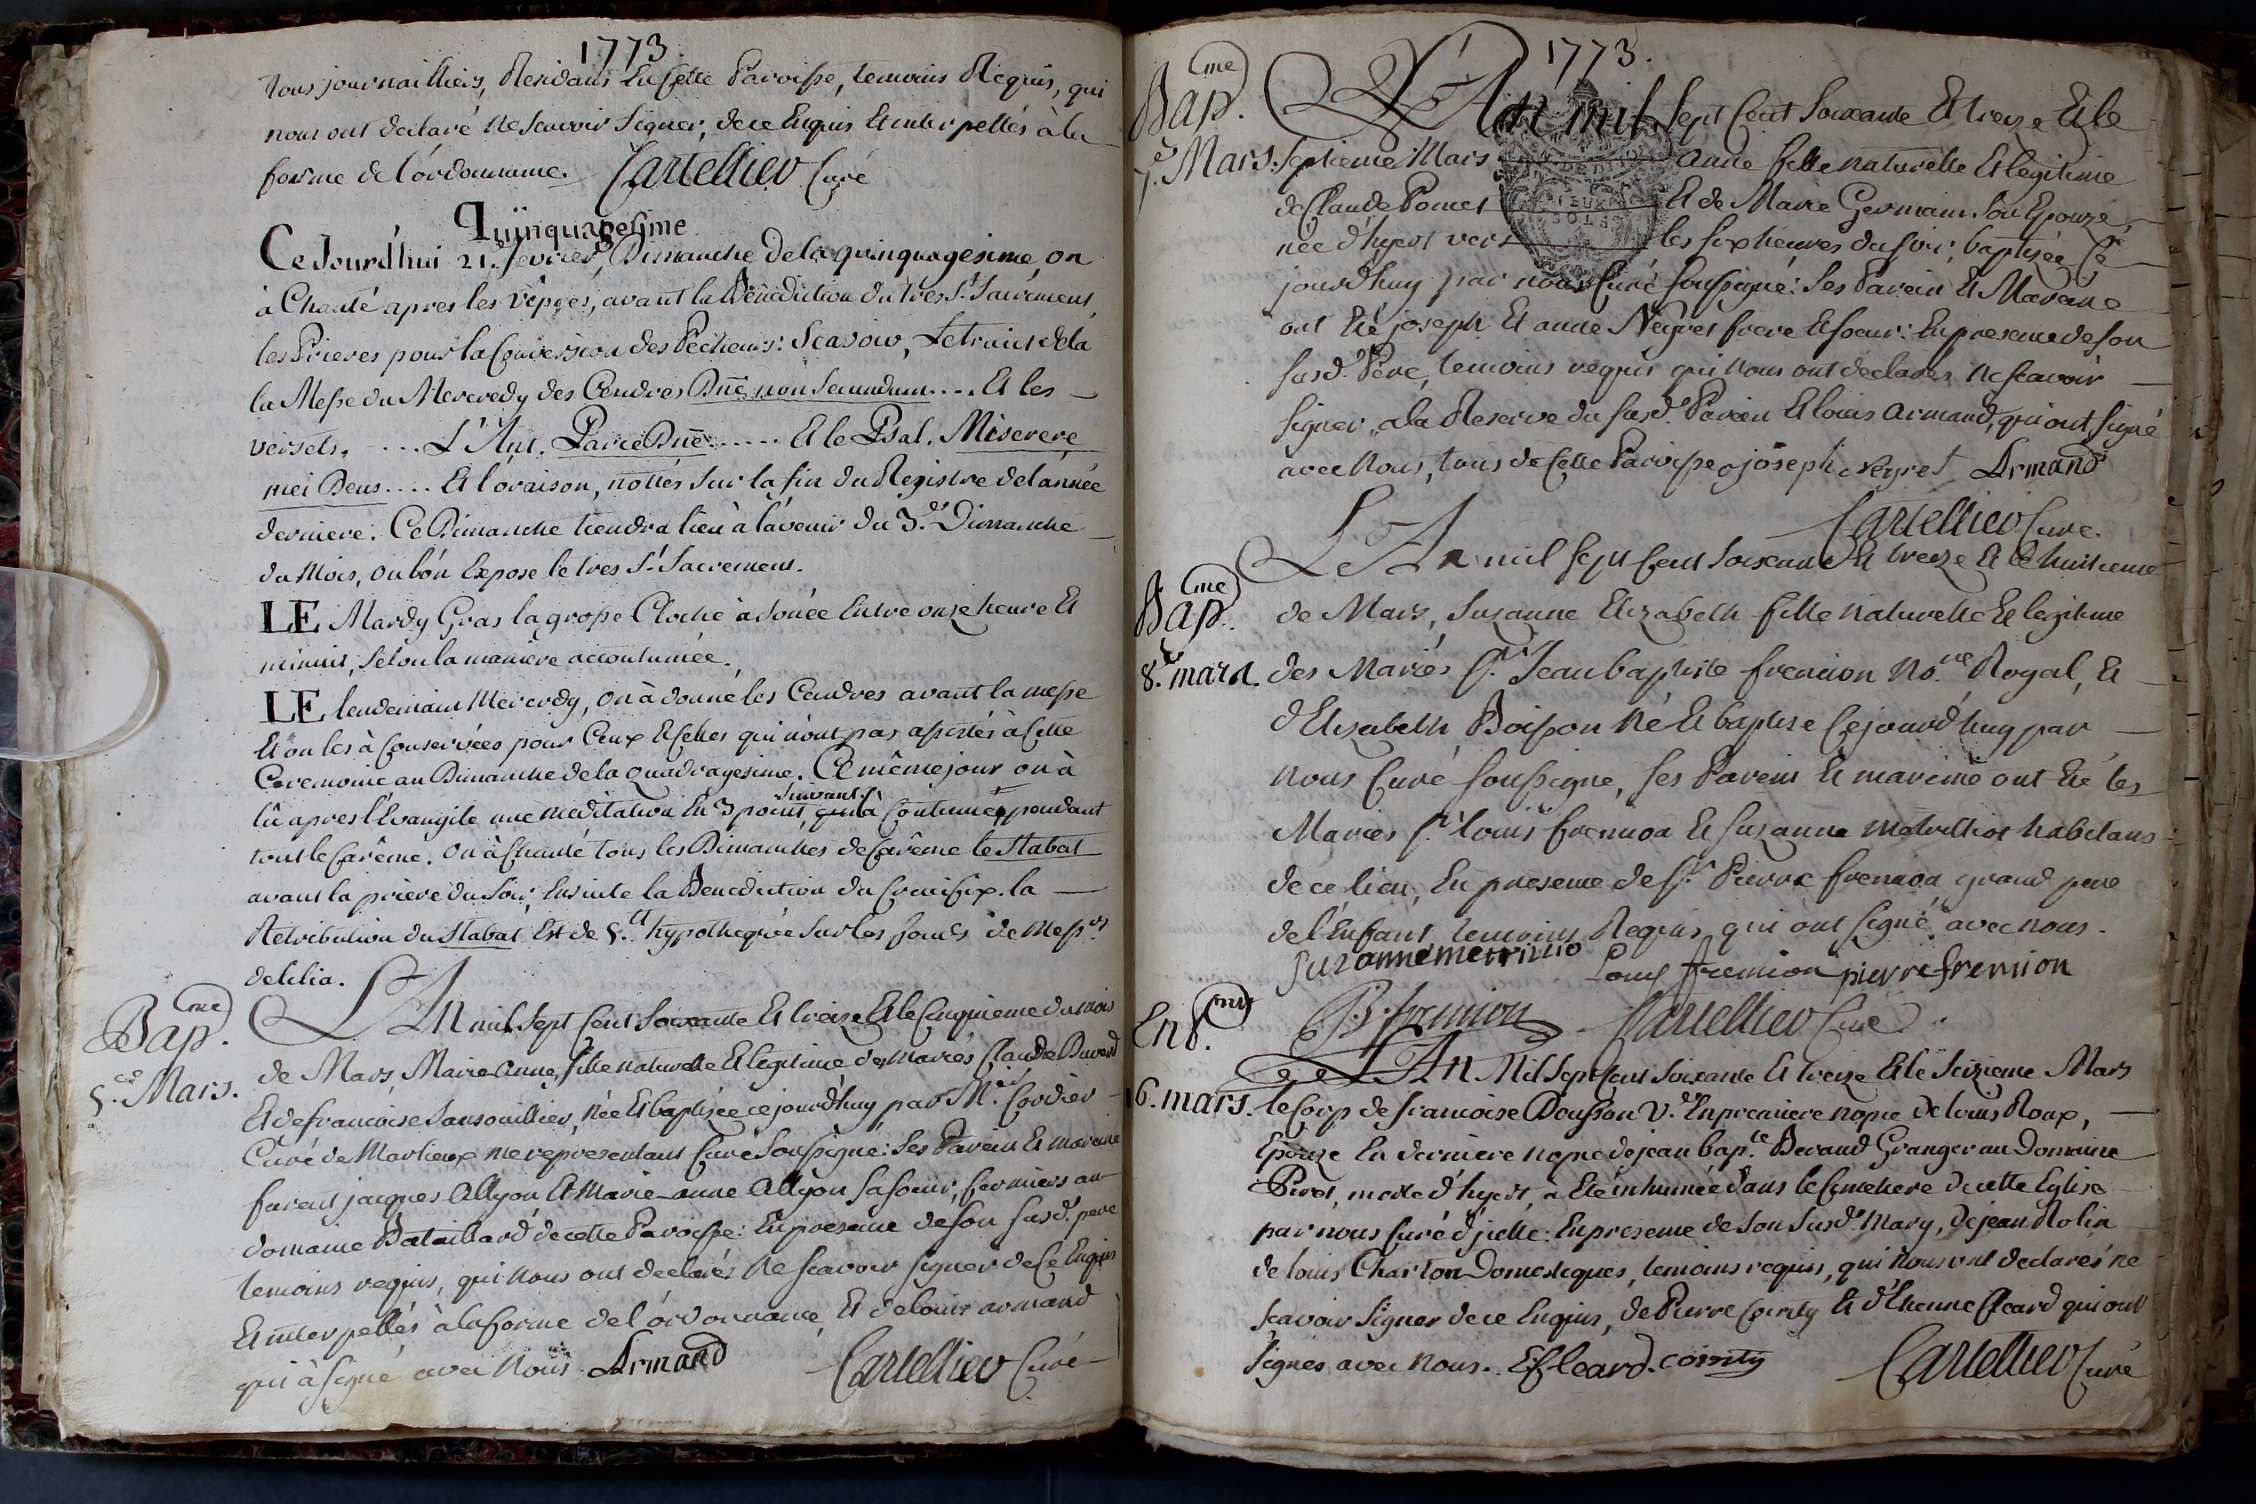 1773.
tous journailliers, Residans En Cette Paroisse, temoins Requis, qui
nous ont declaré ne Scavoir Signer, de ce Enquis et interpellés à la
forme de l'órdonnance. Cartellier Curé
Quinquagesime
Ce Jourd'hui 21.e fevrier, Dimanche de la quinquagesime, on
à Chanté apres les Vêpres, avant la Bénédiction du tres St. Sacrement,
les Prieres pour la Conversion des Pécheurs: Scavoir, Le trait de la
la Messe du Mercredy des Cendres Dne non Secundum.... Et les
versets. .... L'Ant. Parce Dne ..... Et le Psal. Miserere
mei Deus.... Et l'óraison, nottés Sur la fin du Registre de l'année
derniere. Ce Dimanche tiendra lieu à l'avenir du 3.e Dimanche
du Mois, où l'ón Expose le tres St. Sacrement.
LE Mardy Gras la grosse Cloche à Sonée Entre onze heure Et
minuit, Sélon la maniere accoutumée.
LE lendemain Mercredy, on à donné les Cendres avant la messe
Et on les à Conservées pour Ceux et celles qui n'ont pas assistés à Cette
Ceremonie au Dimanche de la Quadragesime. Ce même jour on à
lû apres l'Evangile une méditation En 3 points, Suivant qui à Continué pendant
tout le Carême. on à Chanté tous les Dimanches de Carême le Stabat
avant la priere du Soir, Ensuite la Bénédiction du Crucifix. la
Retribution du Stabat Est de 5.tt hypothequée Sur les fonds de Mess.rs
delilia.
Bap.me
5.e Mars.
L'An mil Sept Cent Soixante Et treize Et le Cinquieme du mois
de Mars Marie Anne, fille naturelle Et légitime des mariés Claude
Et de francoise Sansouillier, née Et baptisée cejourd'huy par M.r Cordier
Curé de Marlieux me representant Curé Soussigné: Ses Parein Et mareine
furent jacques Allyon Et Marie-anne Allyon Sa Soeur, fermiers au
domaine Bataillard de cette Paroisse: En presence de Son Susd. pere
temoins requis, qui nous ont declarés Ne Scavoir Signer de Ce Enquis
Et interpellés à la forme de l'órdonnance, Et de louis armand
qui à Signé avec Nous. Armand Cartellier Curé
1773.
Bap.me
7.e Mars.
L'An mil Sept Cent Soixante Et treize Et le
Septieme Mars anne fille naturelle Et légitime
de Claude Poncet Et de Marie Germain Son Epouze,
née d'hyert vers les Six heures du Soir, baptisée Ce
jourd'huy par nous Curé Soussigné: Ses Parein Et Mareine
ont Eté joseph Et anne Neyret frere Et Soeur: En presence de Son
Susd. Pere, temoins requis qui nous ont declarés ne Scavoir
Signer, a la Reserve du Susd. Parein Et louis armand, qui ont Signé
avec Nous, tous de Cette Paroisse joseph neyret Armand
Cartellier Curé.
Bap.me
8.e mars.
L'An mil Sept Cent Soixante Et treize Et le huitieme
de Mars, Suzanne Elizabeth fille naturelle Et légitime
des Mariés S.r Jean baptiste fremion No.re Royal, Et
d'Elizabeth Boisson Né Et baptisé Cejourd'huy par
nous Curé Soussigné, Ses Parein Et mareine ont Eté les
Mariés S.r louis fremion Et Suzanne habitans
de ce lieu, En presence de S.r Pierre fremion grand pere
de l'Enfant temoins Requis qui ont Signé avec nous.
Suzanne Louis fremion pierre fremion
B. fremion Cartellier Curé.
Ent.
16. mars.
L'An Mil Sept Cent Soixante Et treize Et le Seizieme Mars
le Corp de francoise Bousson V.ve En premiere nopce de louis Roux,
Epouze En derniere nopce de jean bap.te Beraud Granger au Domaine
Pivet, morte d'hyert, a Eté inhumée dans le Cimetiere de cette Eglise
par nous Curé d'jcelle: En presence de Son Susd. Mary, de jean Rolin
de louis Charton Domestiques, temoins requis, qui nous ont declarés ne
Scavoir Signer de ce Enquis, de Pierre Cointy Et d'Ethienne ficard qui ont
Signés avec Nous. E ficard. Cointy Cartellier Curé